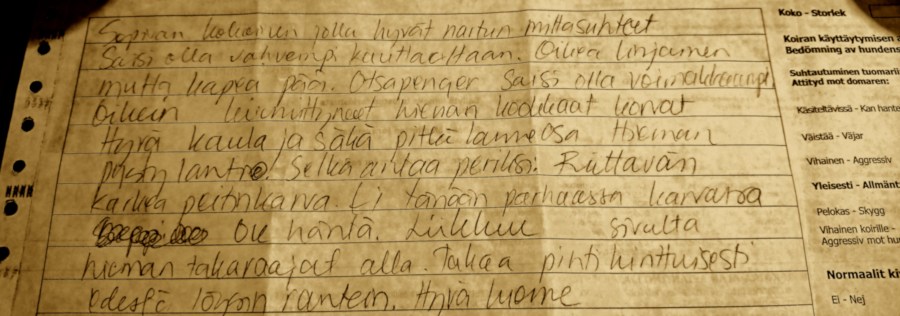 Sopivan kokoinen jolla hyvät nartun mittasuhteet
Saisi olla vahvempi kauttaaltaan. Oikea linjainen
mutta kapea pää. Otsapenger saisi olla voimakkaampi
Oikein kiinnittyneet hieman kookkaat korvat
Hyvä kaula ja säkä pitkä lanneosa Hieman
pysty lantio. Selkä antaa periksi. Riittävän
karkea peitinkarva. Ei tänään parhaassa karvassa
OK häntä. Liikkuu sivulta
hieman takaraajat alla. Takaa pihtikinttuisesti
edestä löysin rantein. Hyvä luonne
Koko - Storlek
Koiran käyttäytymisen
Bedömning av hundens
Suhtautuminen tuomarii
Attityd mot domaren:
Käsiteltävissä - Kan hante
Väistää - Väjar
Vihainen - Aggressiv
Yleisesti - Allmänt
Pelokas - Skygg
Vihainen koirille -
Aggressiv mot hu
Normaalit ki
Ei - Nej